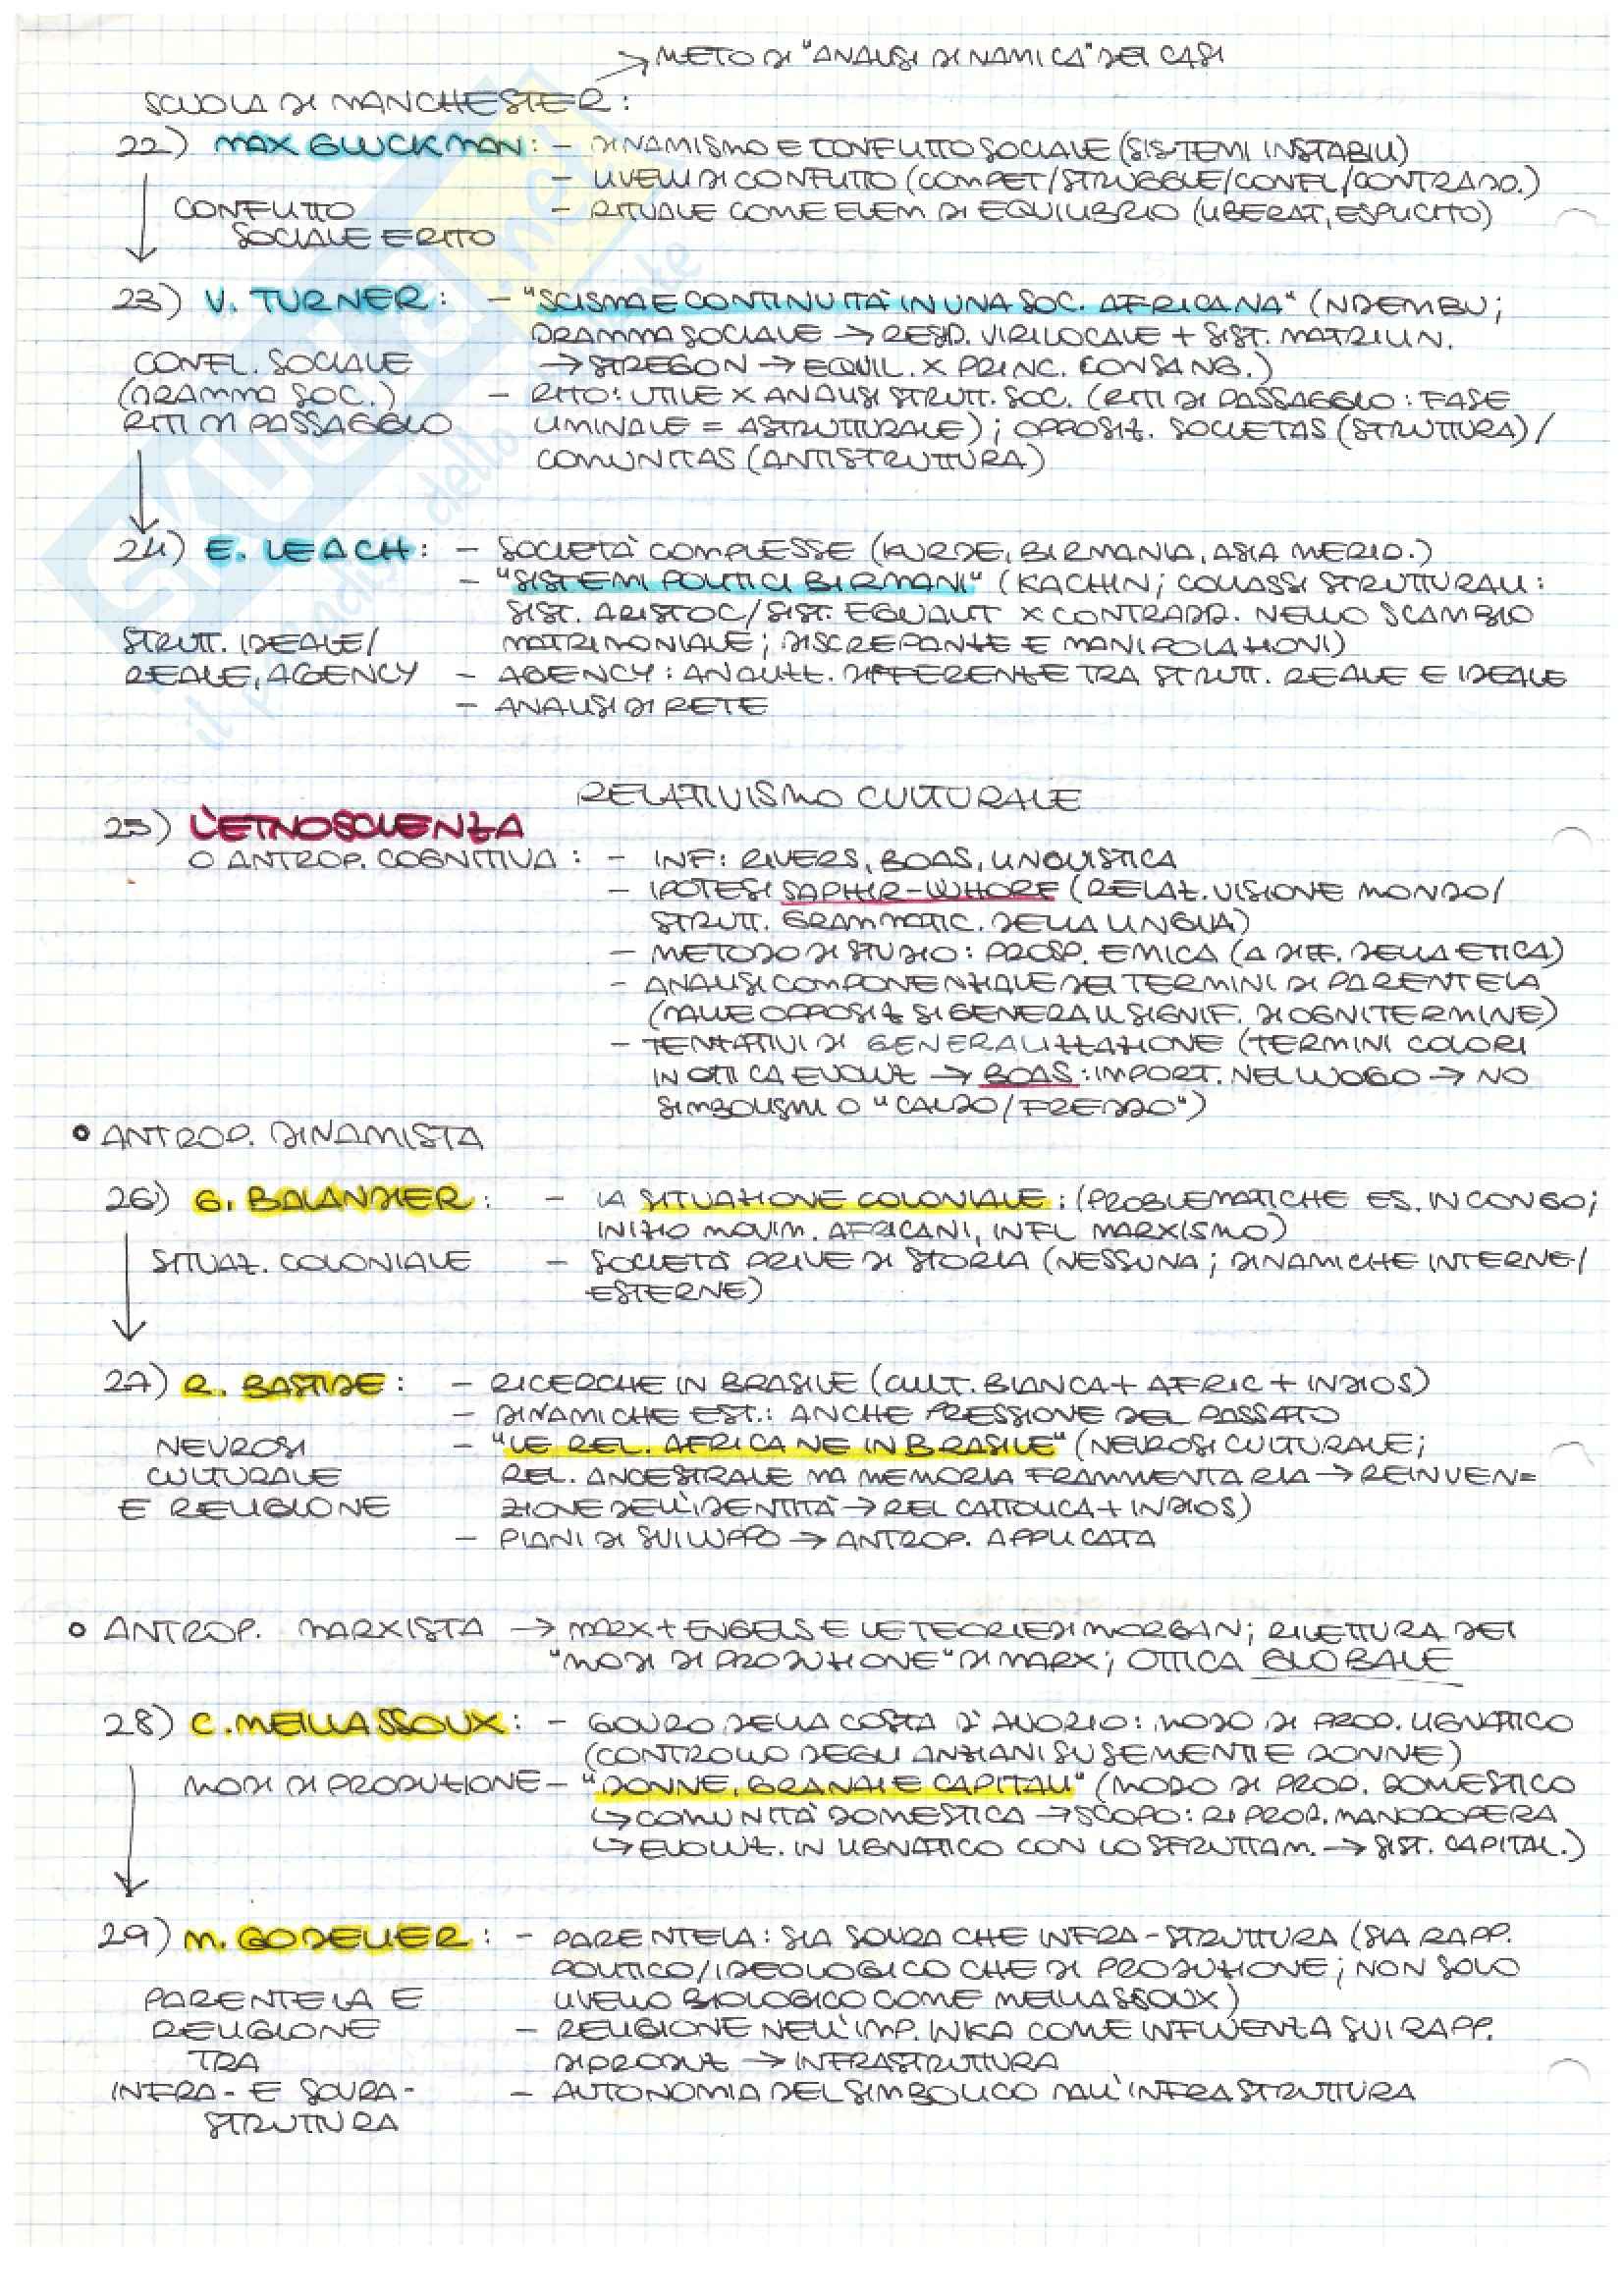 → METODI "ANALISI DINAMICA" DEI CASI
SCUOLA DI MANCHESTER:
22) MAX GLUCKMAN: - DINAMISMO E CONFLITTO SOCIALE (SISTEMI INSTABILI)
- LIVELLI DI CONFLITTO (COMPET/STRUGGLE/CONFL/CONTRADD.)
CONFLITTO - RITUALE COME ELEM. DI EQUILIBRIO (LIBERAT, ESPLICITO)
SOCIALE E RITO
23) V. TURNER: - "SCISMA E CONTINUITÀ IN UNA SOC. AFRICANA" (NDEMBU;
DRAMMA SOCIALE → RESID. VIRILOCALE + SIST. MATRILIN.
CONFL. SOCIALE → STREGON → EQUIL. X PRINC. CONSANG.)
(DRAMMA SOC.) - RITO: UTILE X ANALISI STRUTT. SOC. (RITI DI PASSAGGIO: FASE
RITI DI PASSAGGIO LIMINALE = ASTRUTTURALE); OPPOSIZ. SOCIETAS (STRUTTURA)/
COMUNITAS (ANTISTRUTTURA)
24) E. LEACH: - SOCIETÀ COMPLESSE (KURDE, BIRMANIA, ASIA MERID.)
- "SISTEMI POLITICI BIRMANI" (KACHIN; COLLASSI STRUTTURALI:
SIST. ARISTOC/SIST. EGUALIT X CONTRADD. NELLO SCAMBIO
STRUTT. IDEALE/ MATRIMONIALE; DISCREPANZE E MANIPOLAZIONI)
REALE, AGENCY - AGENCY: ANALIZZ. DIFFERENZE TRA STRUTT. REALE E IDEALE
- ANALISI DI RETE
RELATIVISMO CULTURALE
25) L'ETNOSCIENZA
O ANTROP. COGNITIVA: - INF: RIVERS, BOAS, LINGUISTICA
- IPOTESI SAPHIR-WHORF (RELAZ. VISIONE MONDO/
STRUTT. GRAMMATIC. DELLA LINGUA)
- METODO DI STUDIO: PROSP. EMICA (A DIFF. DELLA ETICA)
- ANALISI COMPONENZIALE DEI TERMINI DI PARENTELA
(DALLE OPPOSIZ SI GENERA IL SIGNIF. DI OGNI TERMINE)
- TENTATIVI DI GENERALIZZAZIONE (TERMINI COLORI
IN OTTICA EVOLUZ → BOAS: IMPORT. NEL LUOGO → NO
SIMBOLISMI O "CALDO/FREDDO")
• ANTROP. DINAMISTA
26) G. BALANDIER: - LA SITUAZIONE COLONIALE: (PROBLEMATICHE ES. IN CONGO;
INIZIO MOVIM. AFRICANI, INFL MARXISMO)
SITUAZ. COLONIALE - SOCIETÀ PRIVE DI STORIA (NESSUNA; DINAMICHE INTERNE/
ESTERNE)
27) R. BASTIDE: - RICERCHE IN BRASILE (CULT. BIANCA + AFRIC + INDIOS)
- DINAMICHE EST.: ANCHE PRESSIONE DEL PASSATO
NEVROSI - "LE REL. AFRICANE IN BRASILE" (NEVROSI CULTURALE;
CULTURALE REL. ANCESTRALE MA MEMORIA FRAMMENTARIA → REINVEN=
E RELIGIONE ZIONE DELL'IDENTITÀ → REL CATTOLICA + INDIOS)
- PIANI DI SVILUPPO → ANTROP. APPLICATA
• ANTROP. MARXISTA → MARX + ENGELS E LE TEORIE DI MORGAN; RILETTURA DEI
"MODI DI PRODUZIONE" DI MARX; OTTICA GLOBALE
28) C. MEILLASSOUX: - GOURO DELLA COSTA D'AVORIO: MODO DI PROD. LIGNATICO
(CONTROLLO DEGLI ANZIANI SU SEMENTI E DONNE)
MODI DI PRODUZIONE - "DONNE, GRANAI E CAPITALI" (MODO DI PROD. DOMESTICO
↳ COMUNITÀ DOMESTICA → SCOPO: RIPROD. MANODOPERA
↳ EVOLUZ. IN LIGNATICO CON LO SFRUTTAM. → SIST. CAPITAL.)
29) M. GODELIER: - PARENTELA: SIA SOVRA CHE INFRA-STRUTTURA (SIA RAPP.
POLITICO/IDEOLOGICO CHE DI PRODUZIONE; NON SOLO
PARENTELA E LIVELLO BIOLOGICO COME MEILLASSOUX)
RELIGIONE - RELIGIONE NELL'IMP. INKA COME INFLUENZA SUI RAPP.
TRA DI PRODUZ → INFRASTRUTTURA
INFRA- E SOVRA- - AUTONOMIA DEL SIMBOLICO DALL'INFRASTRUTTURA
STRUTTURA